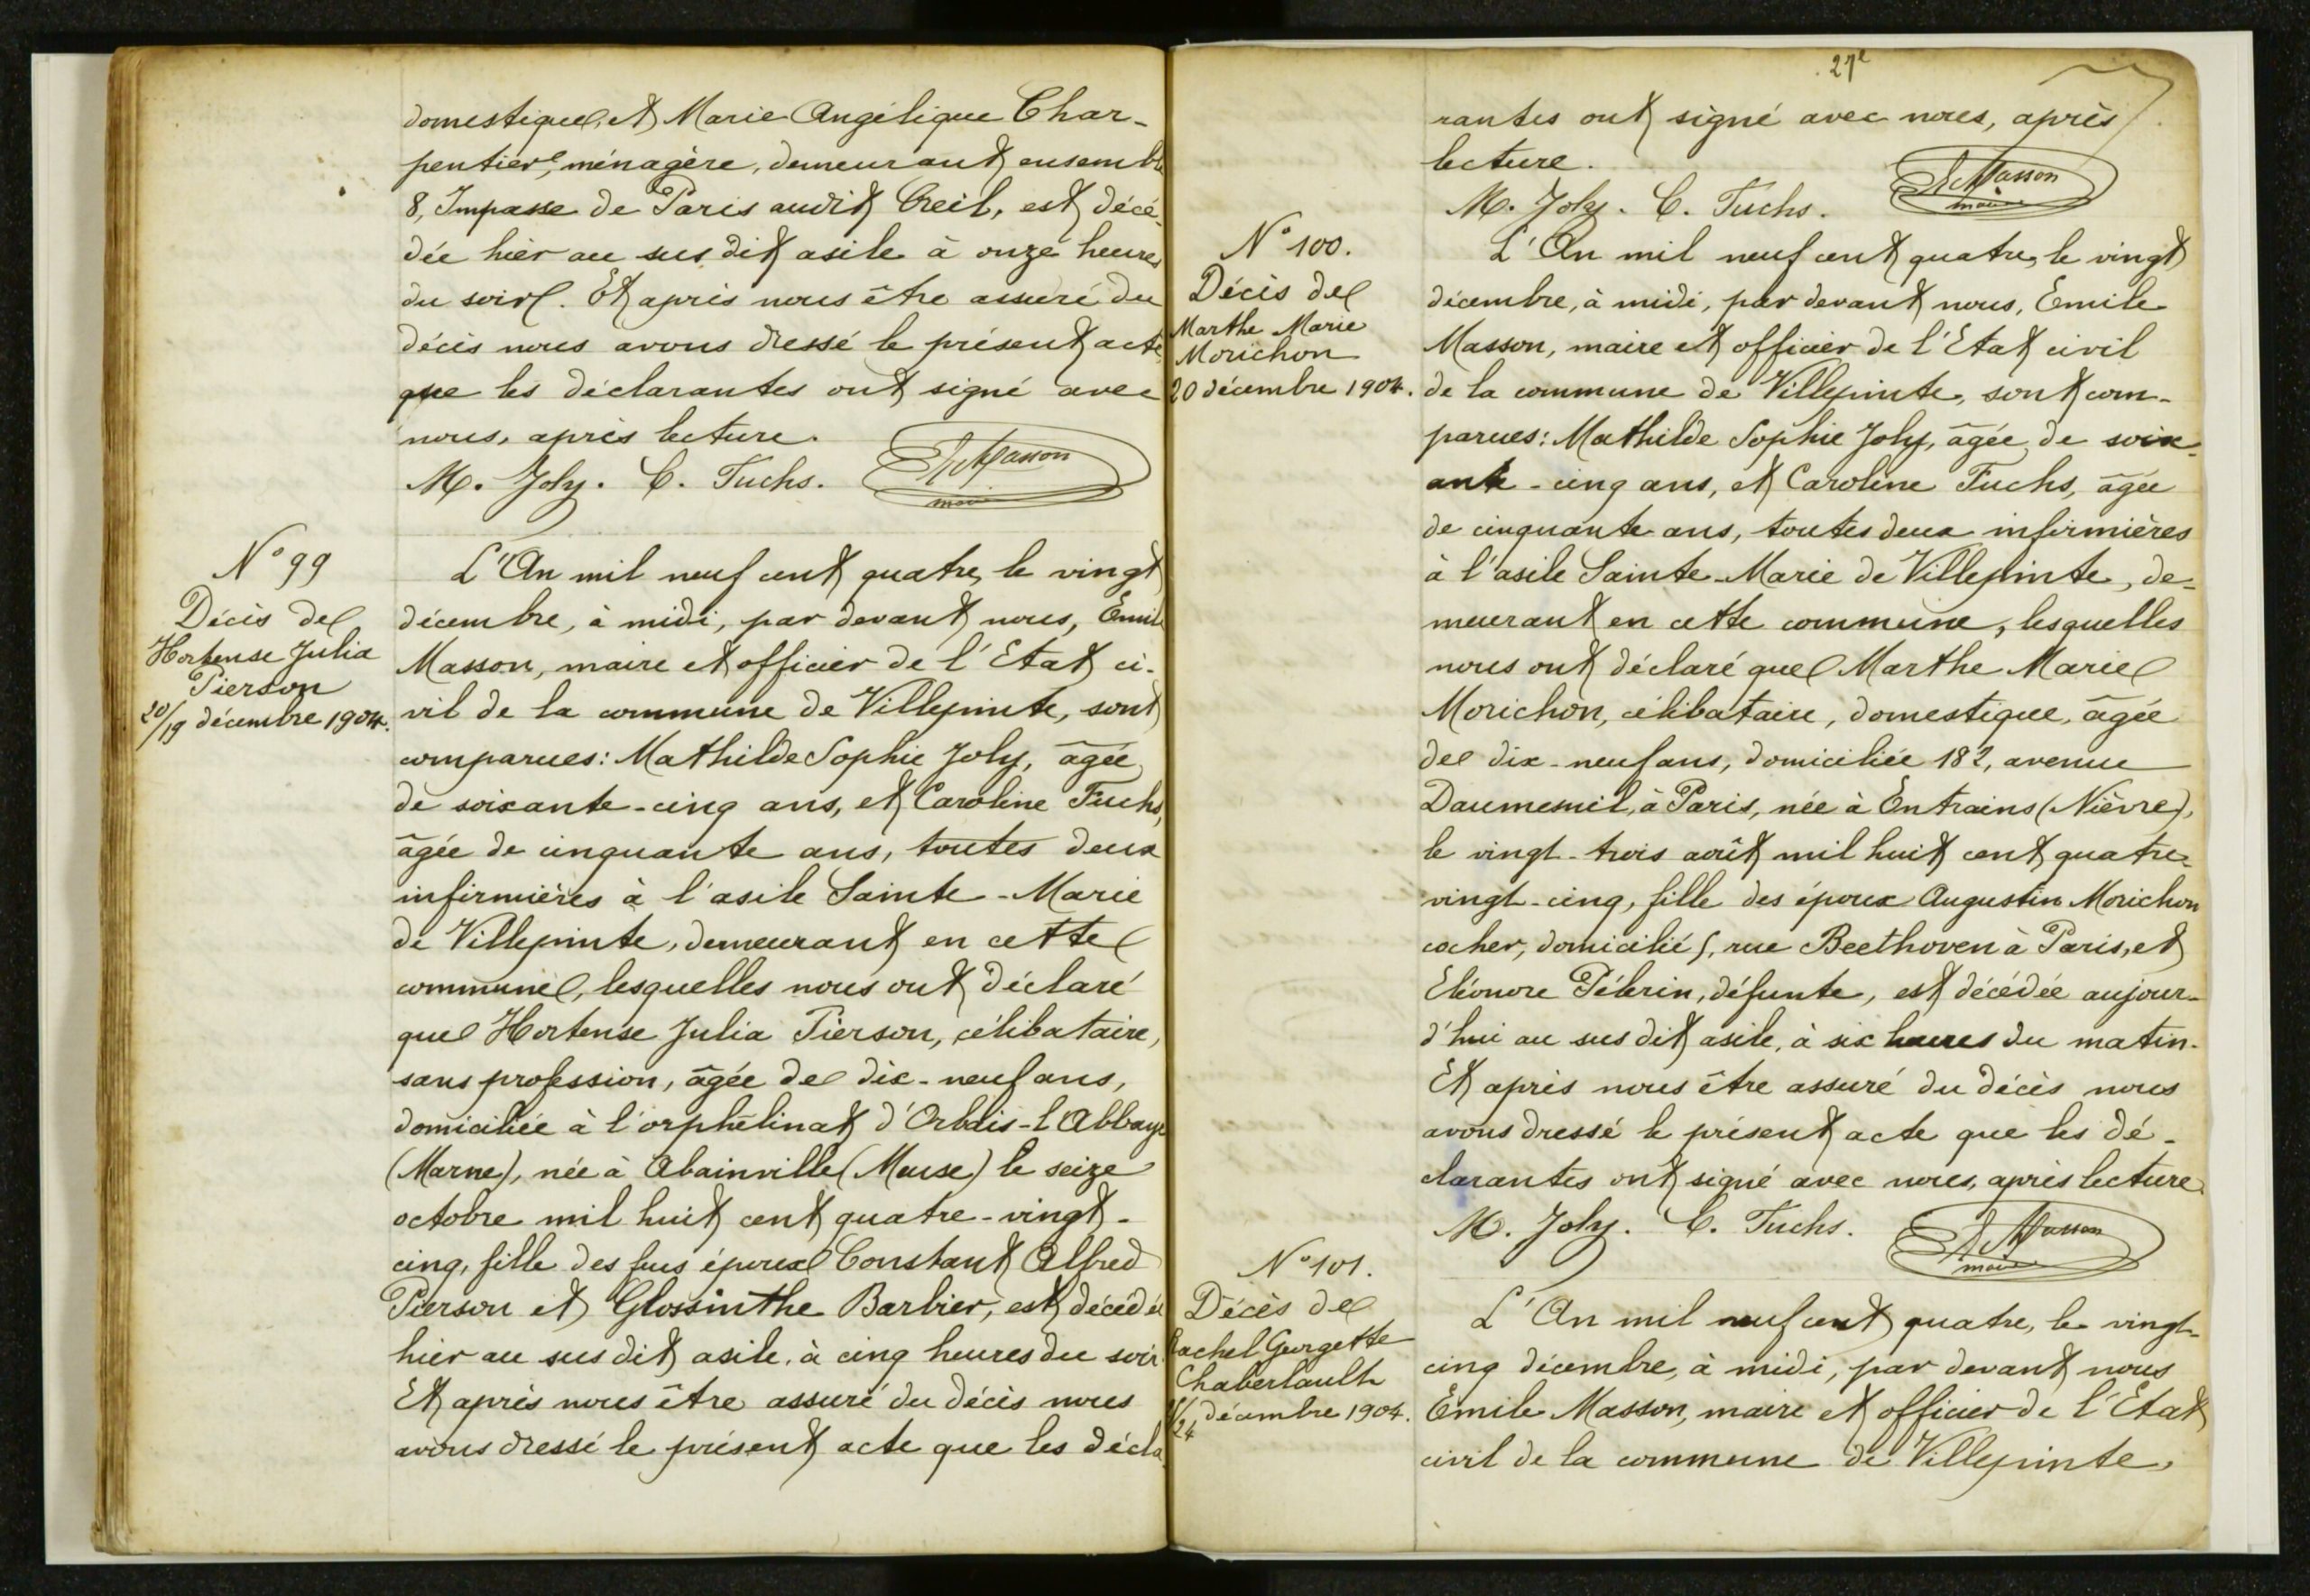 domestique, et Marie Angélique Char-
pentier, ménagère, demeurant ensemble
8, Impasse de Paris audit Creil, est décé-
dée hier au susdit asile à onze heures
du soir. Et après nous être assuré du
décès nous avons dressé le présent acte
que les déclarantes ont signé avec
nous, après lecture.
M. Joly. C. Fuchs. E Masson
maire
N° 99
Décès de
Hortense Julia
Pierson
20/19 décembre 1904.
L'An mil neuf cent quatre, le vingt
décembre, à midi, par devant nous, Emile
Masson, maire et officier de l'Etat ci-
vil de la commune de Villepinte, sont
comparues: Mathilde Sophie Joly, âgée
de soixante-cinq ans, et Caroline Fuchs,
âgée de cinquante ans, toutes deux
infirmières à l'asile Sainte-Marie
de Villepinte, demeurant en cette
commune, lesquelles nous ont déclaré
que Hortense Julia Pierson, célibataire,
sans profession, âgée de dix-neuf ans,
domiciliée à l'orphélinat d'Orbais-l'Abbaye
(Marne), née à Abainville (Meuse) le seize
octobre mil huit cent quatre-vingt-
cinq, fille des feus époux Constant Alfred
Pierson et Glossinthe Barbier, est décédée
hier au susdit asile, à cinq heures du soir.
Et après nous être assuré du décès nous
avons dressé le présent acte que les décla-
27e
rantes ont signé avec nous, après
lecture.
M. Joly. C. Fuchs. E Masson
maire
N° 100.
Décès de
Marthe Marie
Morichon
20 décembre 1904.
L'An mil neuf cent quatre, le vingt
décembre, à midi, par devant nous, Emile
Masson, maire et officier de l'Etat civil
de la commune de Villepinte, sont com-
parues: Mathilde Sophie Joly, âgée de soix-
ante-cinq ans, et Caroline Fuchs, âgée
de cinquante ans, toutes deux infirmières
à l'asile Sainte-Marie de Villepinte, de-
meurant en cette commune, lesquelles
nous ont déclaré que Marthe Marie
Morichon, célibataire, domestique, âgée
de dix-neuf ans, domiciliée 182, avenue
Daumesnil, à Paris, née à Entrains (Nièvre),
le vingt-trois août mil huit cent quatre-
vingt-cinq, fille des époux Augustin Morichon
cocher, domicilié 5, rue Beethoven à Paris, et
Eléonore Pélerin, défunte, est décédée aujour-
d'hui au susdit asile, à six heures du matin.
Et après nous être assuré du décès nous
avons dressé le présent acte que les dé-
clarantes ont signé avec nous, après lecture.
M. Joly. C. Fuchs. E Masson
maire
N° 101.
Décès de
Rachel Georgette
Chaberlault
24 décembre 1904.
L'An mil neuf cent quatre, le vingt-
cinq décembre, à midi, par devant nous
Emile Masson, maire et officier de l'Etat
civil de la commune de Villepinte,